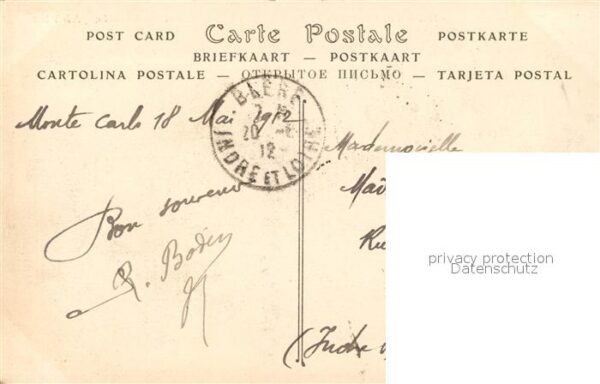 POST CARD Carte Postale POSTKARTE
BRIEFKAART — POSTKAART
CARTOLINA POSTALE — ОТКРЫТОЕ ПИСЬМО — TARJETA POSTAL
BLÉRÉ
20
12
INDRE ET LOIRE
Monte Carlo 18 Mai 1912
Mademoiselle
Bon souvenir
privacy protection
Datenschutz
(Indre